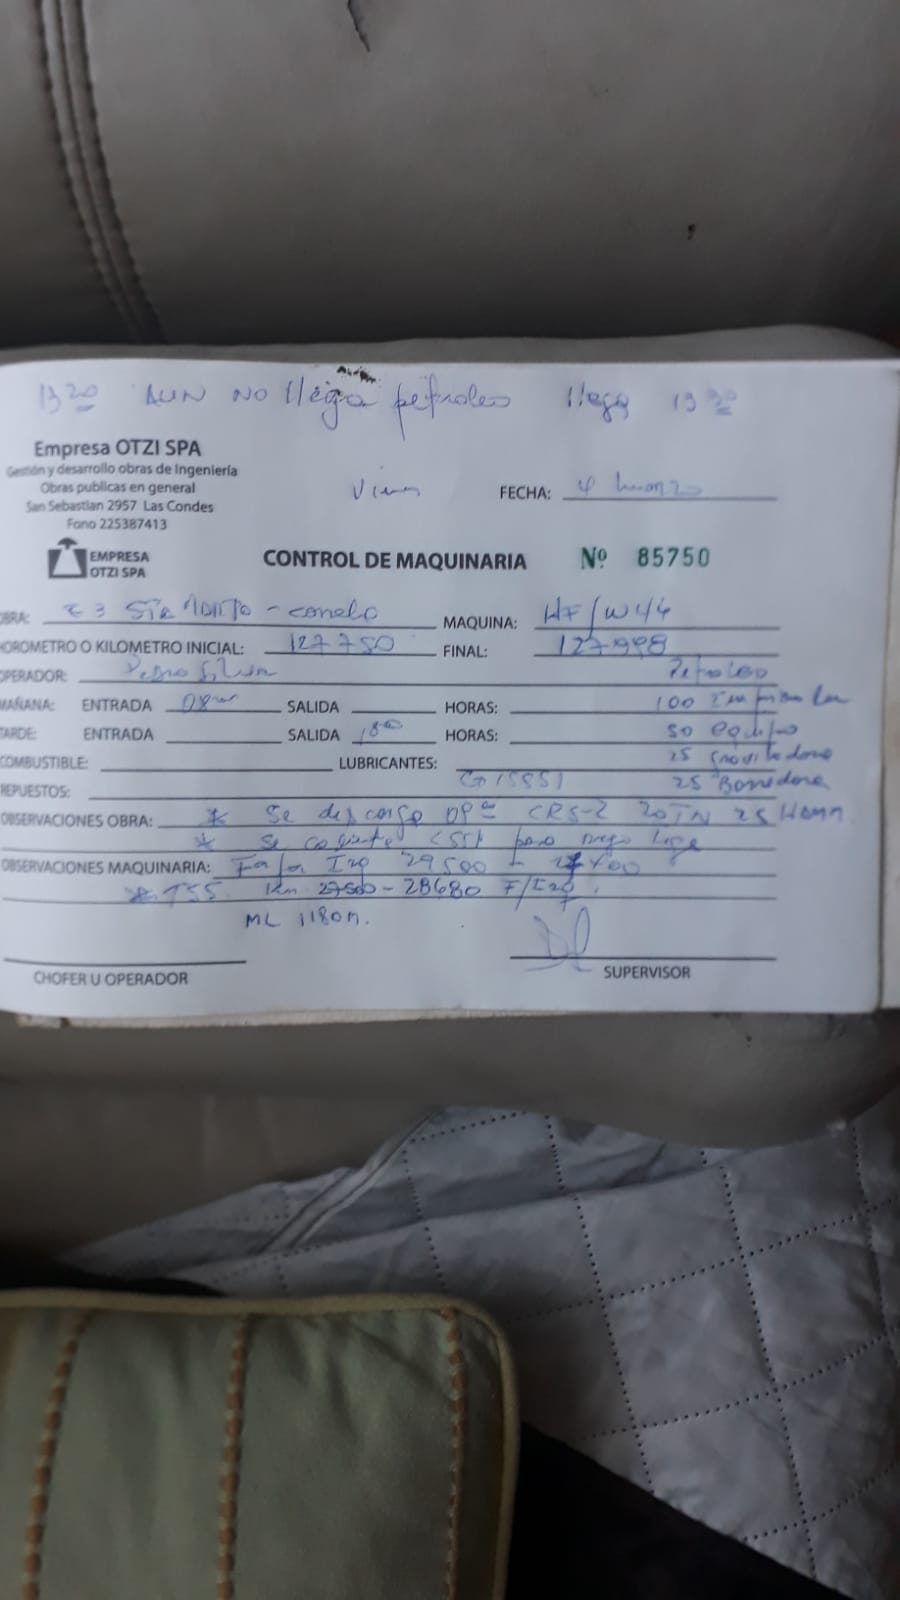 13 20 AUN NO llega petroleo llega 13 30
Empresa OTZI SPA
Gestión y desarrollo obras de Ingeniería
Obras publicas en general
San Sebastian 2957 Las Condes
Fono 225387413
FECHA: 4 marzo
EMPRESA
OTZI SPA
CONTROL DE MAQUINARIA Nº 85750
OBRA: MAQUINA:
HOROMETRO O KILOMETRO INICIAL: 127750 FINAL: 127998
OPERADOR: Pedro Silva Petroleo
MAÑANA: ENTRADA 08 SALIDA HORAS: 100
TARDE: ENTRADA SALIDA 18 00 HORAS: 50 equipo
COMBUSTIBLE: LUBRICANTES: 25
REPUESTOS: 25 Barredora
OBSERVACIONES OBRA: * Se descarga CRS-2 20TN 25
* Se para
OBSERVACIONES MAQUINARIA: Faja Izq 29500
* TSS Km 27500-28680 F/Izq.
ML 1180m.
CHOFER U OPERADOR SUPERVISOR